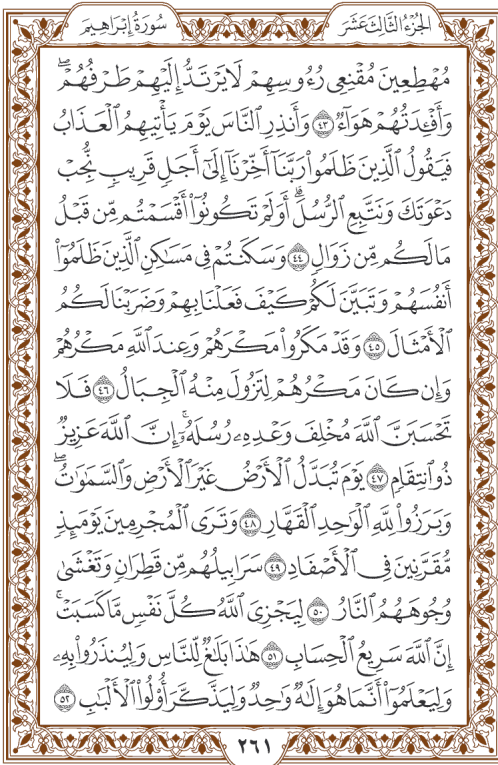 الجُزْءُ الثَّالِثَ عَشَرَ
سُورَةُ إِبْرَاهِيمَ
مُهْطِعِينَ مُقْنِعِى رُءُوسِهِمْ لَا يَرْتَدُّ إِلَيْهِمْ طَرْفُهُمْۖ
وَأَفْـِٔدَتُهُمْ هَوَآءٌ ٤٣ وَأَنذِرِ ٱلنَّاسَ يَوْمَ يَأْتِيهِمُ ٱلْعَذَابُ
فَيَقُولُ ٱلَّذِينَ ظَلَمُوا۟ رَبَّنَآ أَخِّرْنَآ إِلَىٰٓ أَجَلٍ قَرِيبٍ نُّجِبْ
دَعْوَتَكَ وَنَتَّبِعِ ٱلرُّسُلَۗ أَوَلَمْ تَكُونُوٓا۟ أَقْسَمْتُم مِّن قَبْلُ
مَا لَكُم مِّن زَوَالٍ ٤٤ وَسَكَنتُمْ فِى مَسَـٰكِنِ ٱلَّذِينَ ظَلَمُوٓا۟
أَنفُسَهُمْ وَتَبَيَّنَ لَكُمْ كَيْفَ فَعَلْنَا بِهِمْ وَضَرَبْنَا لَكُمُ
ٱلْأَمْثَالَ ٤٥ وَقَدْ مَكَرُوا۟ مَكْرَهُمْ وَعِندَ ٱللَّهِ مَكْرُهُمْ
وَإِن كَانَ مَكْرُهُمْ لِتَزُولَ مِنْهُ ٱلْجِبَالُ ٤٦ فَلَا
تَحْسَبَنَّ ٱللَّهَ مُخْلِفَ وَعْدِهِۦ رُسُلَهُۥٓۚ إِنَّ ٱللَّهَ عَزِيزٌ
ذُو ٱنتِقَامٍ ٤٧ يَوْمَ تُبَدَّلُ ٱلْأَرْضُ غَيْرَ ٱلْأَرْضِ وَٱلسَّمَـٰوَٰتُۖ
وَبَرَزُوا۟ لِلَّهِ ٱلْوَٰحِدِ ٱلْقَهَّارِ ٤٨ وَتَرَى ٱلْمُجْرِمِينَ يَوْمَئِذٍ
مُّقَرَّنِينَ فِى ٱلْأَصْفَادِ ٤٩ سَرَابِيلُهُم مِّن قَطِرَانٍ وَتَغْشَىٰ
وُجُوهَهُمُ ٱلنَّارُ ٥٠ لِيَجْزِىَ ٱللَّهُ كُلَّ نَفْسٍ مَّا كَسَبَتْۚ
إِنَّ ٱللَّهَ سَرِيعُ ٱلْحِسَابِ ٥١ هَـٰذَا بَلَـٰغٌ لِّلنَّاسِ وَلِيُنذَرُوا۟ بِهِۦ
وَلِيَعْلَمُوٓا۟ أَنَّمَا هُوَ إِلَـٰهٌ وَٰحِدٌ وَلِيَذَّكَّرَ أُو۟لُوا۟ ٱلْأَلْبَـٰبِ ٥٢
٢٦١